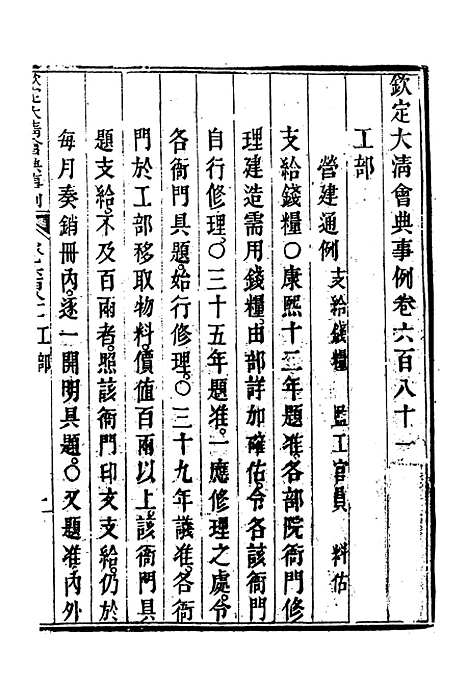 欽定大清會典事例卷六百八十一
工部
營建通例 支給錢糧 監工官員 料估
支給錢糧○康熙十二年題准各部院衙門修
理建造需用錢糧由部詳加確估令各該衙門
自行修理○三十五年題准一應修理之處令
各衙門具題始行修理○三十九年議准各衙
門於工部移取物料價值百兩以上該衙門具
題支給不及百兩者照該衙門印文支給仍於
每月奏銷冊內逐一開明具題○又題准內外
欽定大清會典事例 工部 一